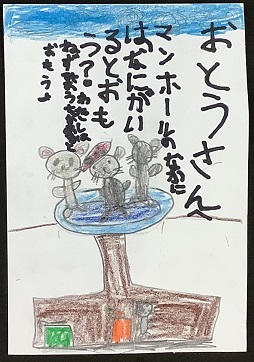 おとうさんへ
マンホールのなかに
はなにがい
るとおも
う？わたしは
ねずみの
おもうよ